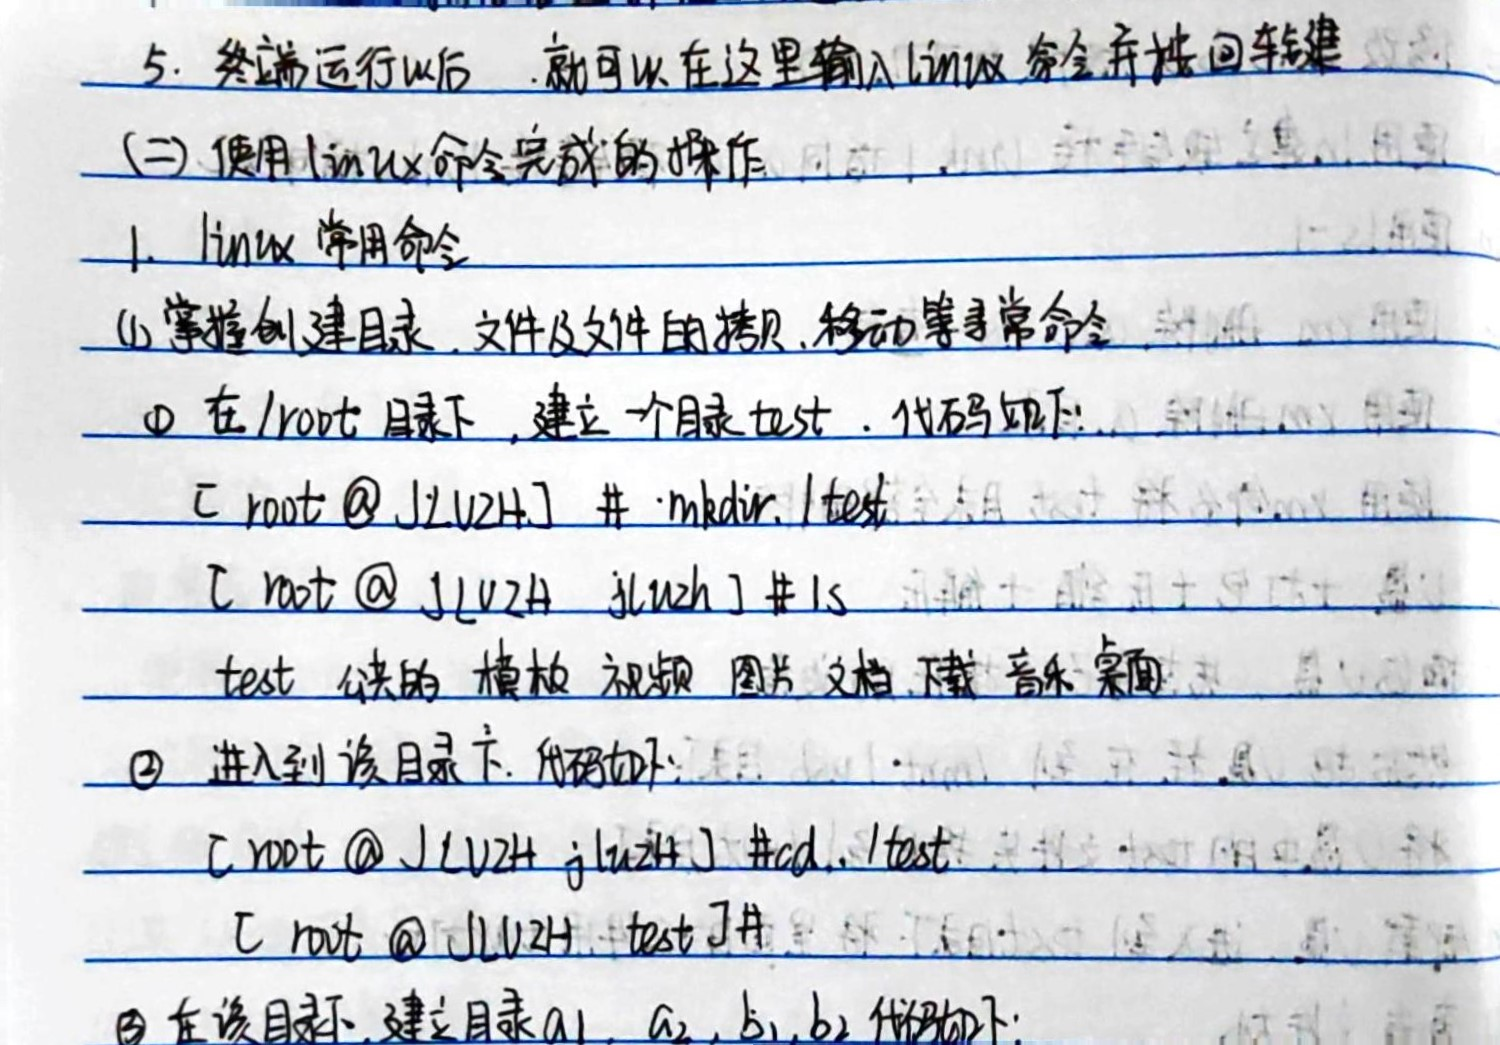 5. 终端运行以后,就可以在这里输入linux 命令并按回车键
(二) 使用linux命令完成的操作
1. linux 常用命令
(1) 掌握创建目录、文件及文件的拷贝、移动等寻常命令
① 在/root 目录下,建立一个目录test. 代码如下:
[ root @ JLUZH ] # mkdir ./test
[ root @ JLUZH jluzh ] # ls
test 公共的 模板 视频 图片 文档 下载 音乐 桌面
② 进入到该目录下. 代码如下:
[ root @ JLUZH jluzH ] #cd ./test
[ root @ JLUZH test ]#
③ 在该目录下,建立目录a1, a2, b1, b2 代码如下: